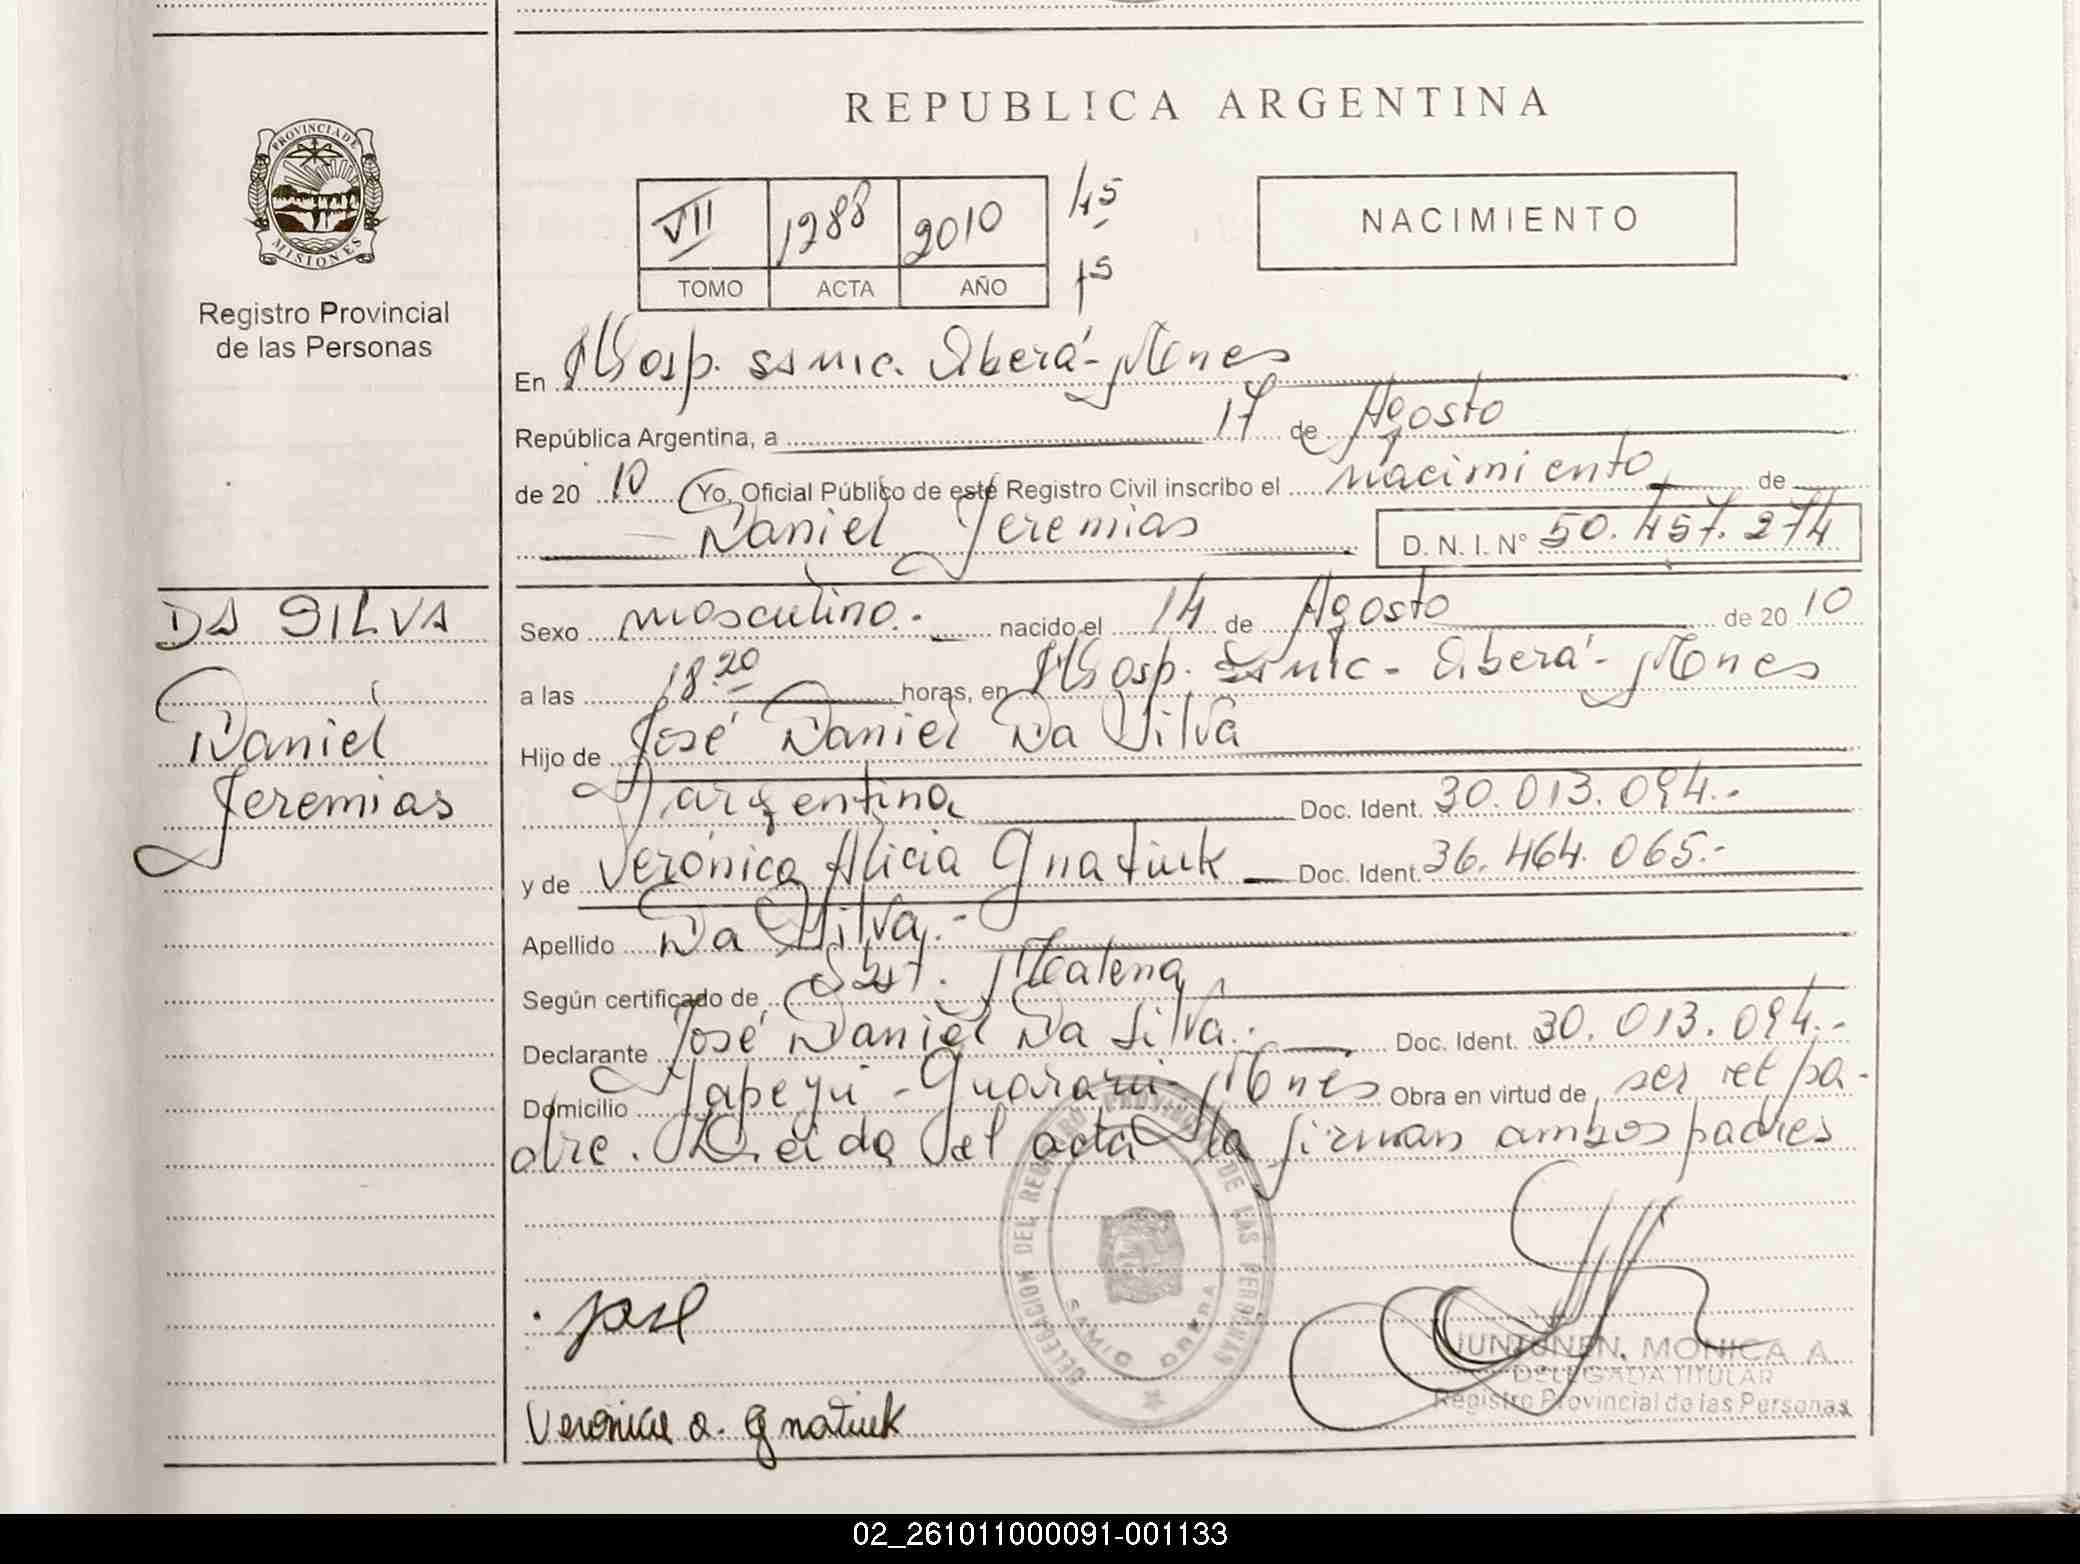 REPUBLICA ARGENTINA
PROVINCIA DE
MISIONES
Registro Provincial
de las Personas
VII 1288 2010 45
TOMO ACTA AÑO 15
NACIMIENTO
En Hosp. ssmic. Oberá - Mnes
República Argentina, a 17 de Agosto
de 20 10 Yo, Oficial Público de este Registro Civil inscribo el nacimiento de
Daniel Jeremias D. N. I. N° 50.457.274
DA SILVA
Daniel
Jeremias
Sexo masculino.- nacido el 14 de Agosto de 20 10
a las 18.20 horas, en Hosp. ssmic - Oberá - Mnes
Hijo de José Daniel Da Silva
argentina Doc. Ident. 30.013.094.-
y de Verónica Alicia Gnatiuk Doc. Ident. 36.464.065.-
Apellido Da Silva.-
Según certificado de Obst. Malena
Declarante José Daniel Da Silva.- Doc. Ident. 30.013.094.-
Domicilio Yapeyú - Guaraní - Mnes Obra en virtud de ser el pa-
dre. Leida el acta la firman ambos padres
DELEGACION DEL REGISTRO PROVINCIAL DE LAS PERSONAS
SAMIC OBERA
José
JUNTUNEN, MONICA A.
DELEGADA TITULAR
Registro Provincial de las Personas
Verónica a. Gnatiuk
02_261011000091-001133